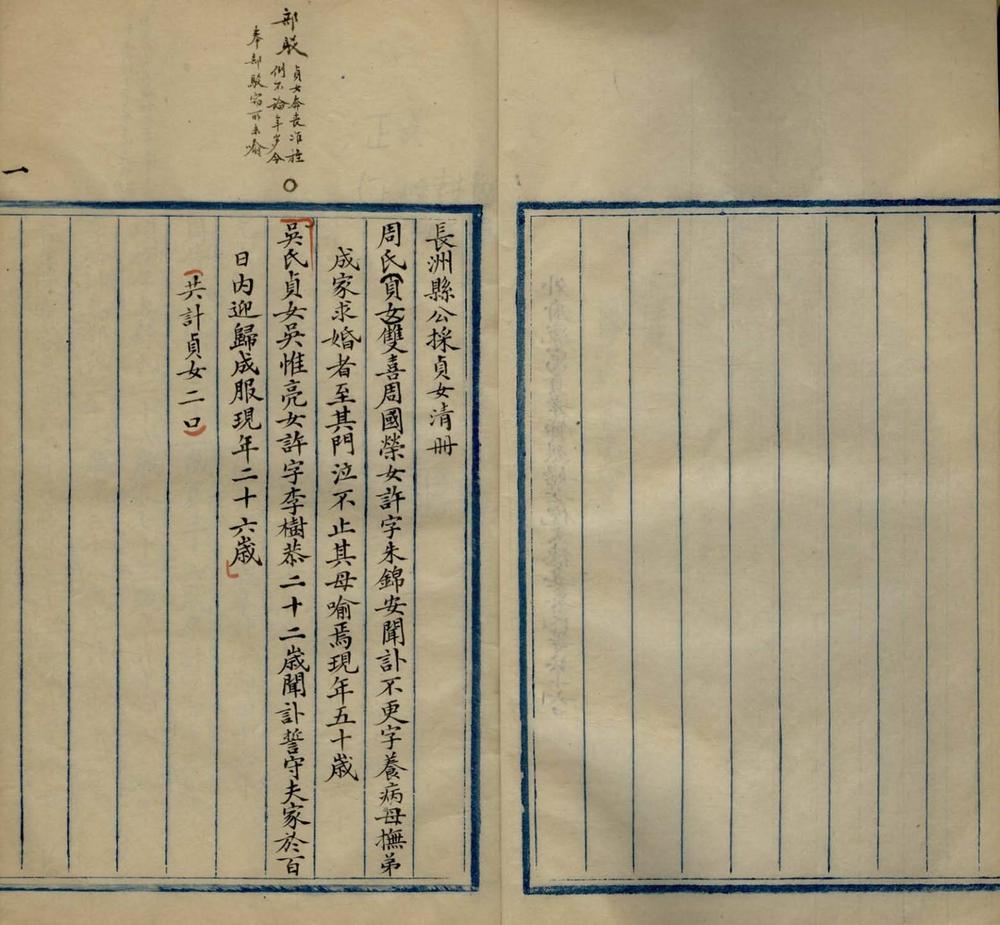 部駁
貞女奔喪准旌
例不論年岁今
奉部駁宿所未喻
一
長洲縣公採貞女清冊
周氏貞女雙喜周國榮女許字朱錦安聞訃不更字養病母撫弟
成家求婚者至其門泣不止其母喻焉現年五十歲
吳氏貞女吳惟亮女許字李樹恭二十二歲聞訃誓守夫家於百
日内迎歸成服現年二十六歲
共計貞女二口